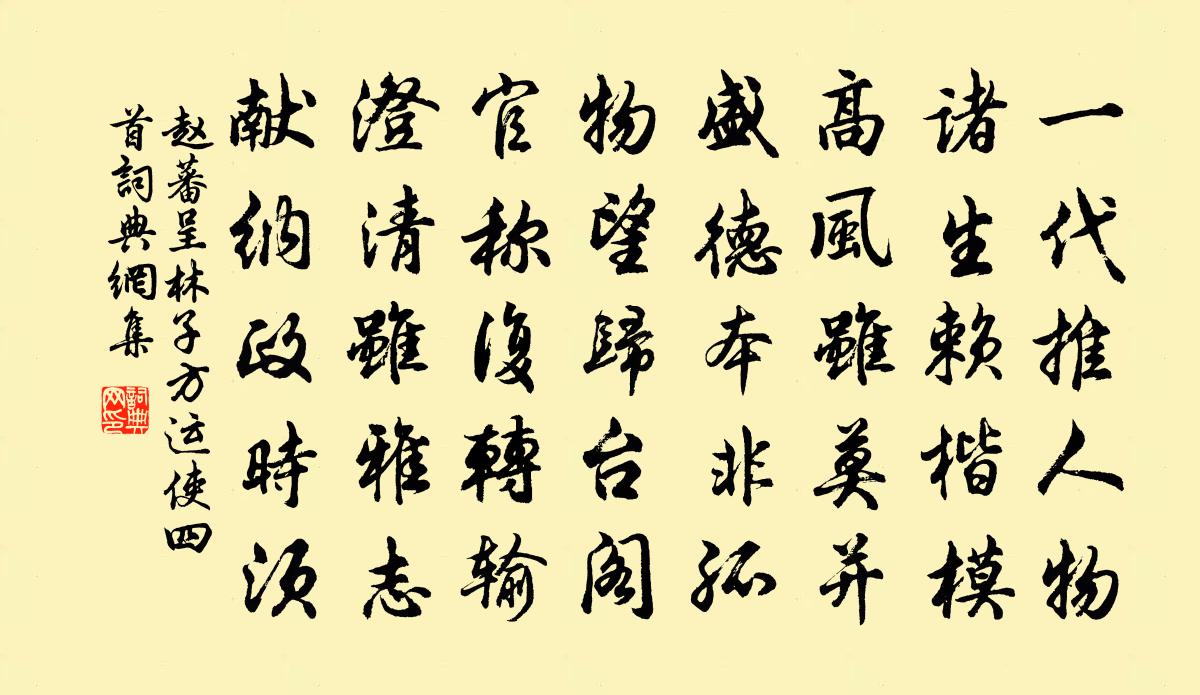 一代推人物
诸生赖楷模
高風雖莫并
盛德本非孤
物望歸台阁
官称復轉输
澄清雖雅志
献纳政時须
赵蕃呈林子方运使四
首詞典網集
詞典
网印